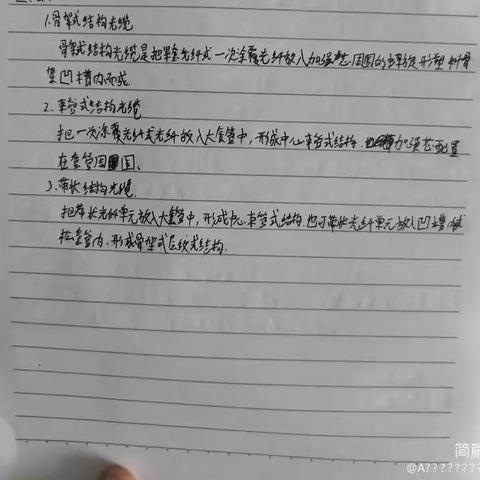 1.骨架式结构光缆
骨架式结构光缆是把紧套光纤或一次涂覆光纤放入加强芯周围的螺旋形塑料骨
架凹槽内而成.
2.束管式结构光缆
把一次涂覆光纤或光纤放入大套管中,形成中心束管式结构.加强芯配置
在套管周围.
3.带状结构光缆
把带状光纤单元放入大套管中,形成中心束管式结构.也可带状光纤单元放入凹槽或
松套管内,形成骨架式层绞式结构.
简篇
@A????????